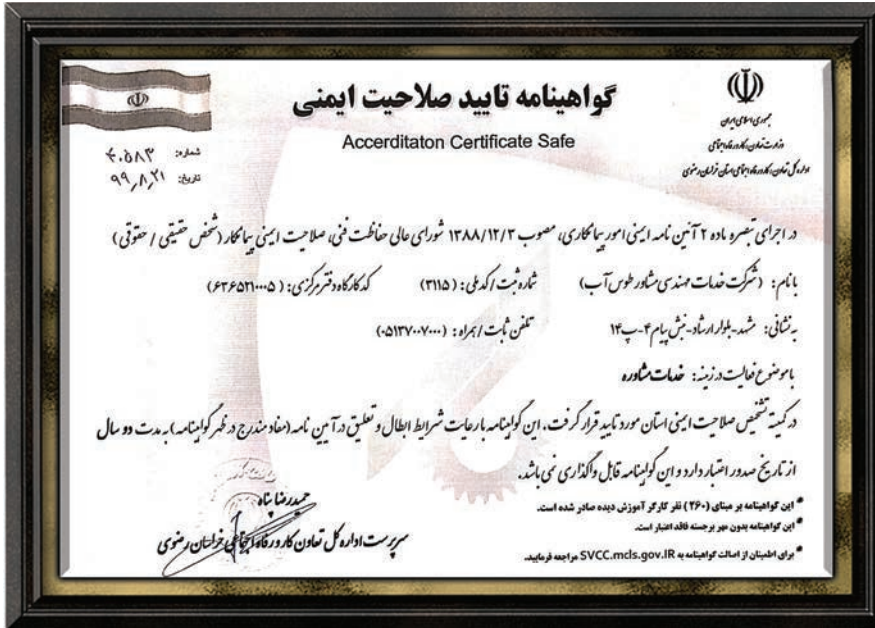 گواهینامه تایید صلاحیت ایمنی
Accerditaton Certificate Safe
جمهوری اسلامی ایران
وزارت تعاون، کار و رفاه اجتماعی
اداره کل تعاون، کار و رفاه اجتماعی استان خراسان رضوی
شماره: ۴۰۵۸۳
تاریخ: ۹۹٫۸٫۲۱
در اجرای تبصره ماده ۲ آئین نامه ایمنی امور پیمانکاری، مصوب ۱۳۸۸/۱۲/۳ شورای عالی حفاظت فنی، صلاحیت ایمنی پیمانکار (شخص حقیقی / حقوقی)
با نام: (شرکت خدمات مهندسی مشاور طوس آب) شماره ثبت / کد ملی: (۳۱۱۵) کد کارگاه دفتر مرکزی: (۶۳۶۵۲۱۰۰۰۵)
به نشانی: مشهد-بلوار ارشاد-نبش پیام ۴-پ ۱۴ تلفن ثابت / همراه: (۰۵۱۳۷۰۰۷۰۰۰)
با موضوع فعالیت در زمینه: خدمات مشاوره
در کمیته تشخیص صلاحیت ایمنی استان مورد تایید قرار گرفت. این گواهینامه با رعایت شرایط ابطال و تعلیق در آیین نامه (مفاد مندرج در ظهر گواهینامه) به مدت دو سال
از تاریخ صدور اعتبار دارد و این گواهینامه قابل واگذاری نمی باشد.
* این گواهینامه بر مبنای (۲۶۰) نفر کارگر آموزش دیده صادر شده است.
* این گواهینامه بدون مهر برجسته فاقد اعتبار است.
* برای اطمینان از اصالت گواهینامه به SVCC.mcls.gov.IR مراجعه فرمایید.
حمیدرضا پناه
سرپرست اداره کل تعاون کار و رفاه اجتماعی خراسان رضوی